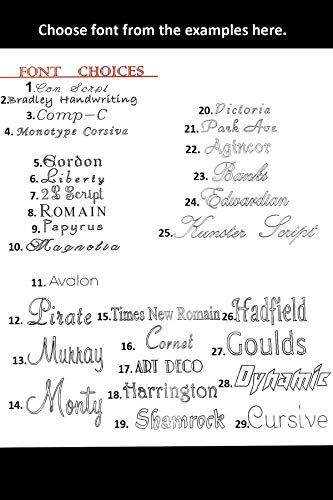 Choose font from the examples here.
FONT CHOICES
1. Con Script
2. Bradley Handwriting
3. Comp-C
4. Monotype Corsiva
5. Gordon
6. Liberty
7. 2L Script
8. ROMAIN
9. Papyrus
10. Magnolia
11. Avalon
12. Pirate
13. Murray
14. Monty
15. Times New Romain
16. Cornet
17. ART DECO
18. Harrington
19. Shamrock
20. Victoria
21. Park Ave
22. Agincor
23. Banks
24. Edwardian
25. Kunster Script
26. Hadfield
27. Goulds
28. Dynamic
29. Cursive